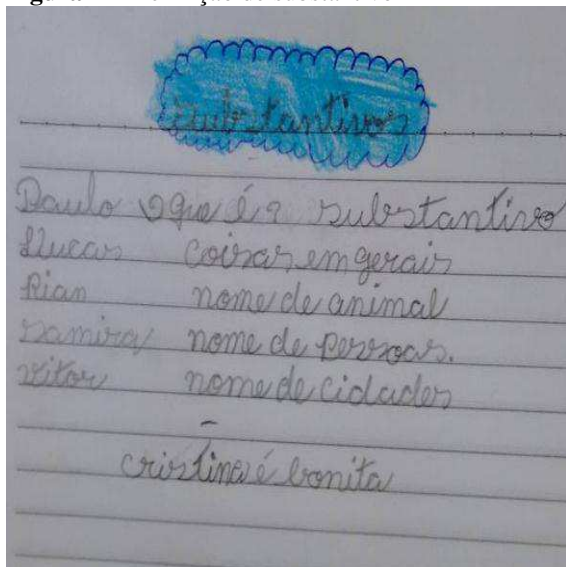 Substantivos
Paulo o que é? substantivo
Lucas coisas em gerais
Rian nome de animal
Samira nome de pessoas.
vitor nome de cidades
cristina é bonita